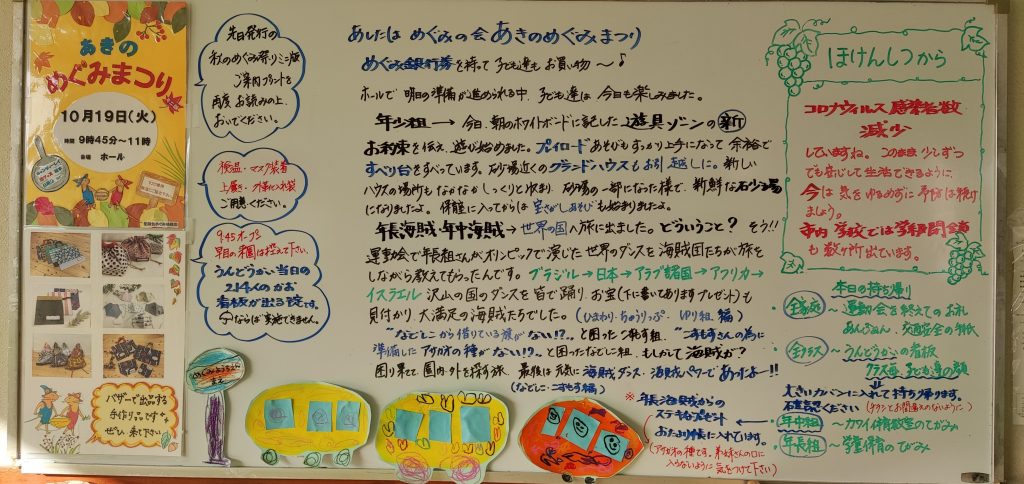 あきの
めぐみまつり
10月19日(火)
時間 9時45分～11時
会場 ホール
バザーで出品する
手作り品です
ぜひ、来て下さい。
先日発行の
秋のめぐみ祭りミニ版
ご案内プリントを
再度お読みの上、
おいでください。
検温・マスク装着
上履き・外履き入れ袋
ご用意ください。
9:45オープン
早目の来園は控えて下さい。
うんどうかい当日の
214人のかお
看板が出る予定です。
雨ならば実施できません。
めぐみようちえん
まえ
あしたは めぐみの会 あきのめぐみまつり
めぐみ銀行券を持って 子ども達も お買い物 ～♪
ホールで 明日の準備が進められる中、子ども達は 今日も楽しみました。
年少組 → 今日、朝のホワイトボードに記した 遊具ゾーンの新
お約束を伝え、遊び始めました。プレイロードあそびもすっかり上手になって 余裕で
すべり台をすべっています。砂場近くのグランドハウスもお引越しに。新しい
ハウスの場所も なかなか しっくりと収まり、砂場の一部になった様で、新鮮な
になりましたよ。保育に入ってからは 宝さがしあそびも始まりましたよ。
年長海賊・年中海賊 → 世界の国へ旅に出ました。どういうこと？ そう!!
運動会で年長組さんがオリンピックで演じた世界のダンスを海賊団たちが旅を
しながら教えてもらったんです。ブラジル→日本→アラブ諸国→アフリカ→
イスラエル 沢山の国のダンスを皆で踊り、お宝(下に書いてあります プレゼント)も
見付かり、大満足の海賊たちでした。(ひまわり・ちゅうりっぷ・ゆり組 編)
“なでしこから借りている旗がない!?„ と困ったこすもす組、“こすもすさんの為に
準備した アサガオの種がない!?„ と困ったなでしこ組、もしかして 海賊か？
困り果てて 園内・外を探す旅、最後は元気に海賊ダンス・海賊パワーで ありましたよー!!
(なでしこ・こすもす編)
※年長海賊からの
ステキなプレゼント
おたより帳に入ています。
(アサガオの種です。弟妹さんの口に
入らないように 気をつけて下さい)
ほけんしつから
コロナウィルス 感染者数
減少
していますね。このまま 少しずつ
でも安心して生活できるように
今は 気をゆるめずに 予防は続け
ましょう。
市内 学校では 学級閉鎖
も数ヶ所出ています。
本日の持ち帰り
・全家庭 ～ 運動会を終えてのお礼
・全クラス ～ うんどうかいの看板
クラス毎、子ども達の顔
大きいカバンに入れて持ち帰ります。
石確認ください
・年中組 ～ カワイ体操教室のてがみ
・年長組 ～ 学童保育のてがみ